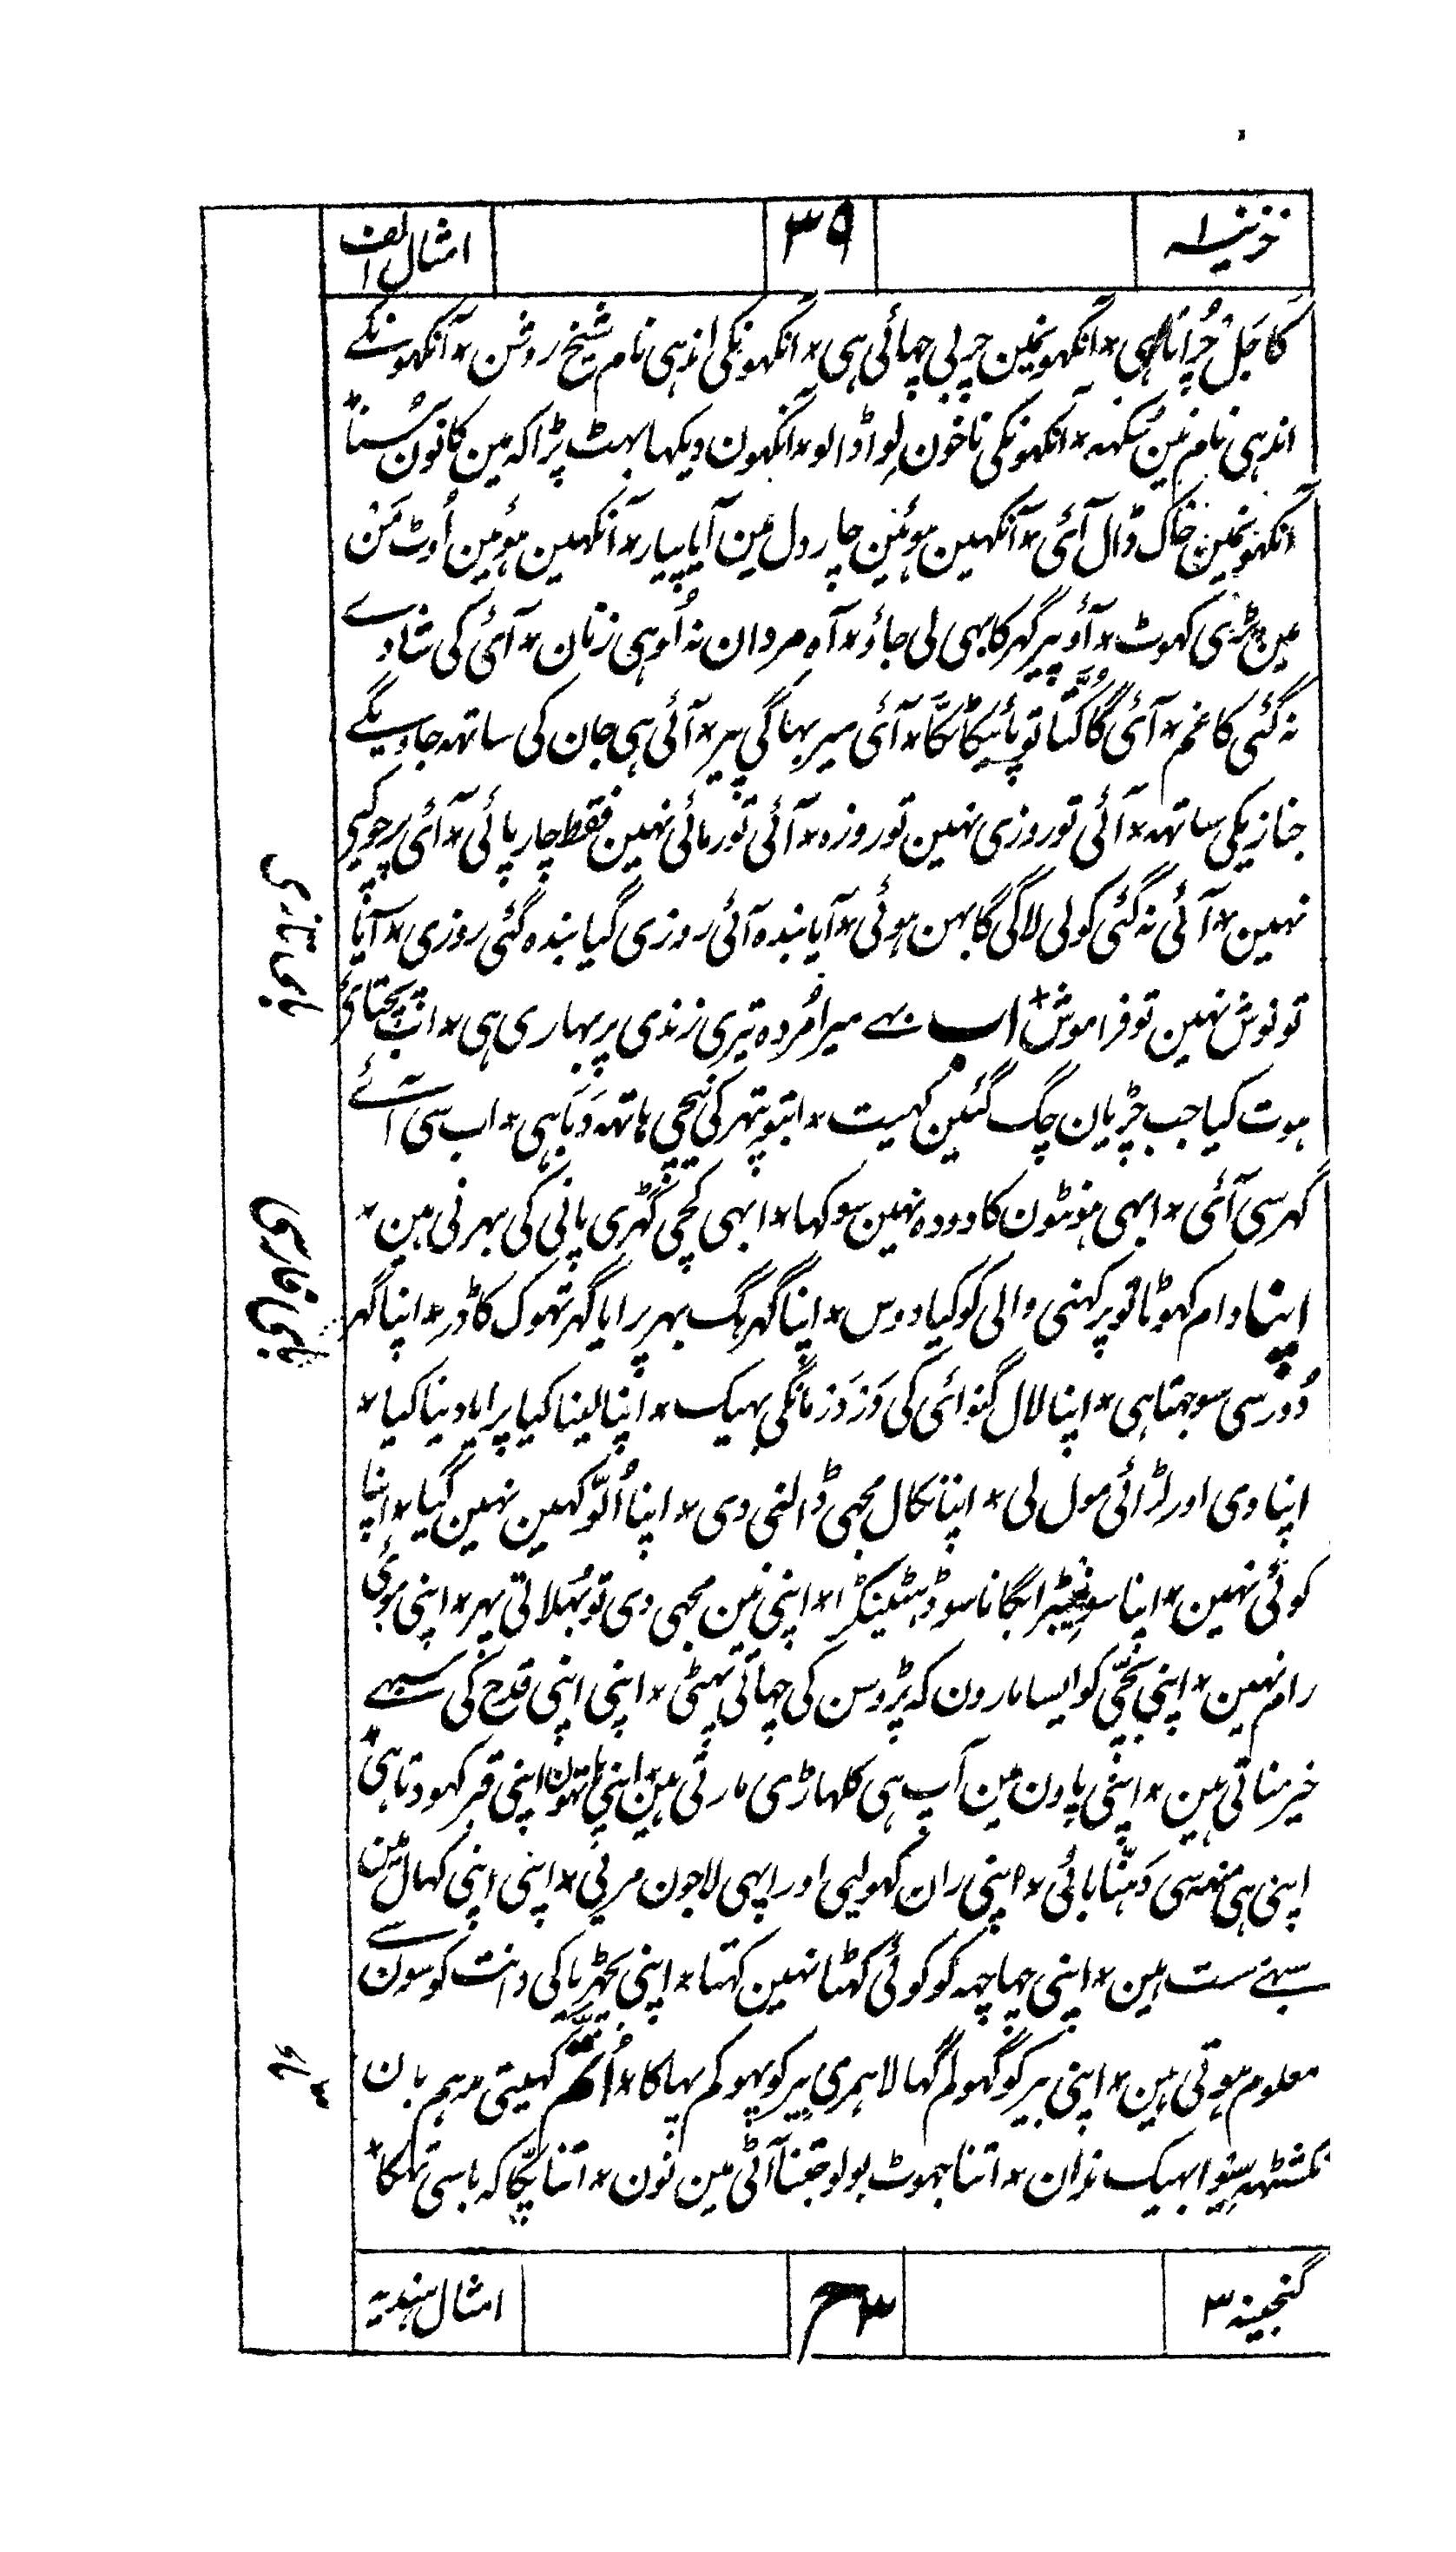 خزینہ ۱
۳۹
امثال الف
کاجل چُراتا ہی * آنکھونمین چربی چھائی ہی * آنکھونکی اندہی نام شیخ روشن * آنکھونکے
اندہی نام نین سُکھہ * آنکھونکی ناخون لواڈالو * آنکھون دیکھا بہٹ پڑا کہ مین کانون سُنا *
آنکھونمین خاک ڈال آئی * آنکھین ہوئین چار دل مین آیا پیار * آنکھین ہوئین اُوٹ مَن
مین پڑی کھوٹ * آؤ پیر گھر کا بھی لی جاؤ * آہ مردان نہ اُوہی زنان * آئی کی شادے
نہ گئی کا غم * آئی گا کُتّا تو پائیگا ٹُکّا * آئی میر بھاگی پیر * آئی ہی جان کی ساتھہ جاویگے
جنازیکی ساتھہ * آئی تو روزی نہین تو روزہ * آئی تو رمائی نہین فقط چارپائی * آئی پر چوکی
نہین * آئی نہ گئی کولی لاگی گابہن ہوئی * آیا بندہ آئی روزی گیا بندہ گئی روزی * آیا
تو نوش نہین تو فراموش * اب بہے میرا مُردہ تیری زندی پر بہاری ہی * اب پچتائی
ہوت کیا جب چڑیان چگ گئین کھیت * ابتو پتھر کی نیچی ہاتھہ دَبا ہی * اب سی آئے
گھر سی آئی * ابھی ہونٹون کا دودہ نہین سوکھا * ابھی کچی گھڑی پانی کی بہرنی ہین *
اپنا دام کھوٹا تو پرکہنی والی کو کیا دوس * اپنا گھر ہگ بہر پرایا گھر تھوک کا ڈر * اپنا گھر
دُور سی سوجہتا ہی * اپنا لال گنوائی کی دَر دَر مانگی بہیک * اپنا لینا کیا پرایا دینا کیا *
اپنا دی اور لڑائی مول لی * اپنا نکال مجہی ڈالنی دی * اپنا اُلّو کہین نہین گیا * اپنا
کوئی نہین * اپنا سو نیڑا بگانا سو ڈہینگڑا * اپنی نین مجہی دی تو بُہلاتی پہر * اپنی موئی
رام نہین * اپنی بچّی کو ایسا مارون کہ پڑوسن کی چہاتی پہٹی * اپنی اپنی قدح کی سبہے
خیر مناتی ہین * اپنی پاون مین آپ ہی کلہاڑی مارتی ہین * اپنی ہاتھون اپنی قبر کہودتا ہی *
اپنی ہی منہہ سی دَہنّا بائی * اپنی ران کھولیی اور اپہی لاجون مریی * اپنی اپنی کھال مین
سبہے مست ہین * اپنی چہاچہہ کو کوئی کھٹا نہین کہتا * اپنی بچھڑیا کی دانت کوسون سے
معلوم ہوتی ہین * اپنی بیر کو گہولم گہالا ہمری بیر کو بہوکم بہاکا * اُتّم کہیتی مدہم بان
نکشٹھہ سیوا بہیک ندان * اتنا جہوٹ بولو جتنا آٹی مین نون * اتنا پکّا کہ باسی تھکا *
گنجینہ ۳
۴۳
امثال ہندیہ